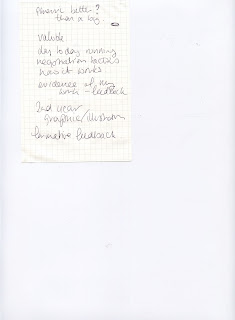 better?
than a log.
day to day running
negotiation tactics
how it works
evidence of my
work - feedback
2nd year
graphics/illustration
formative feedback